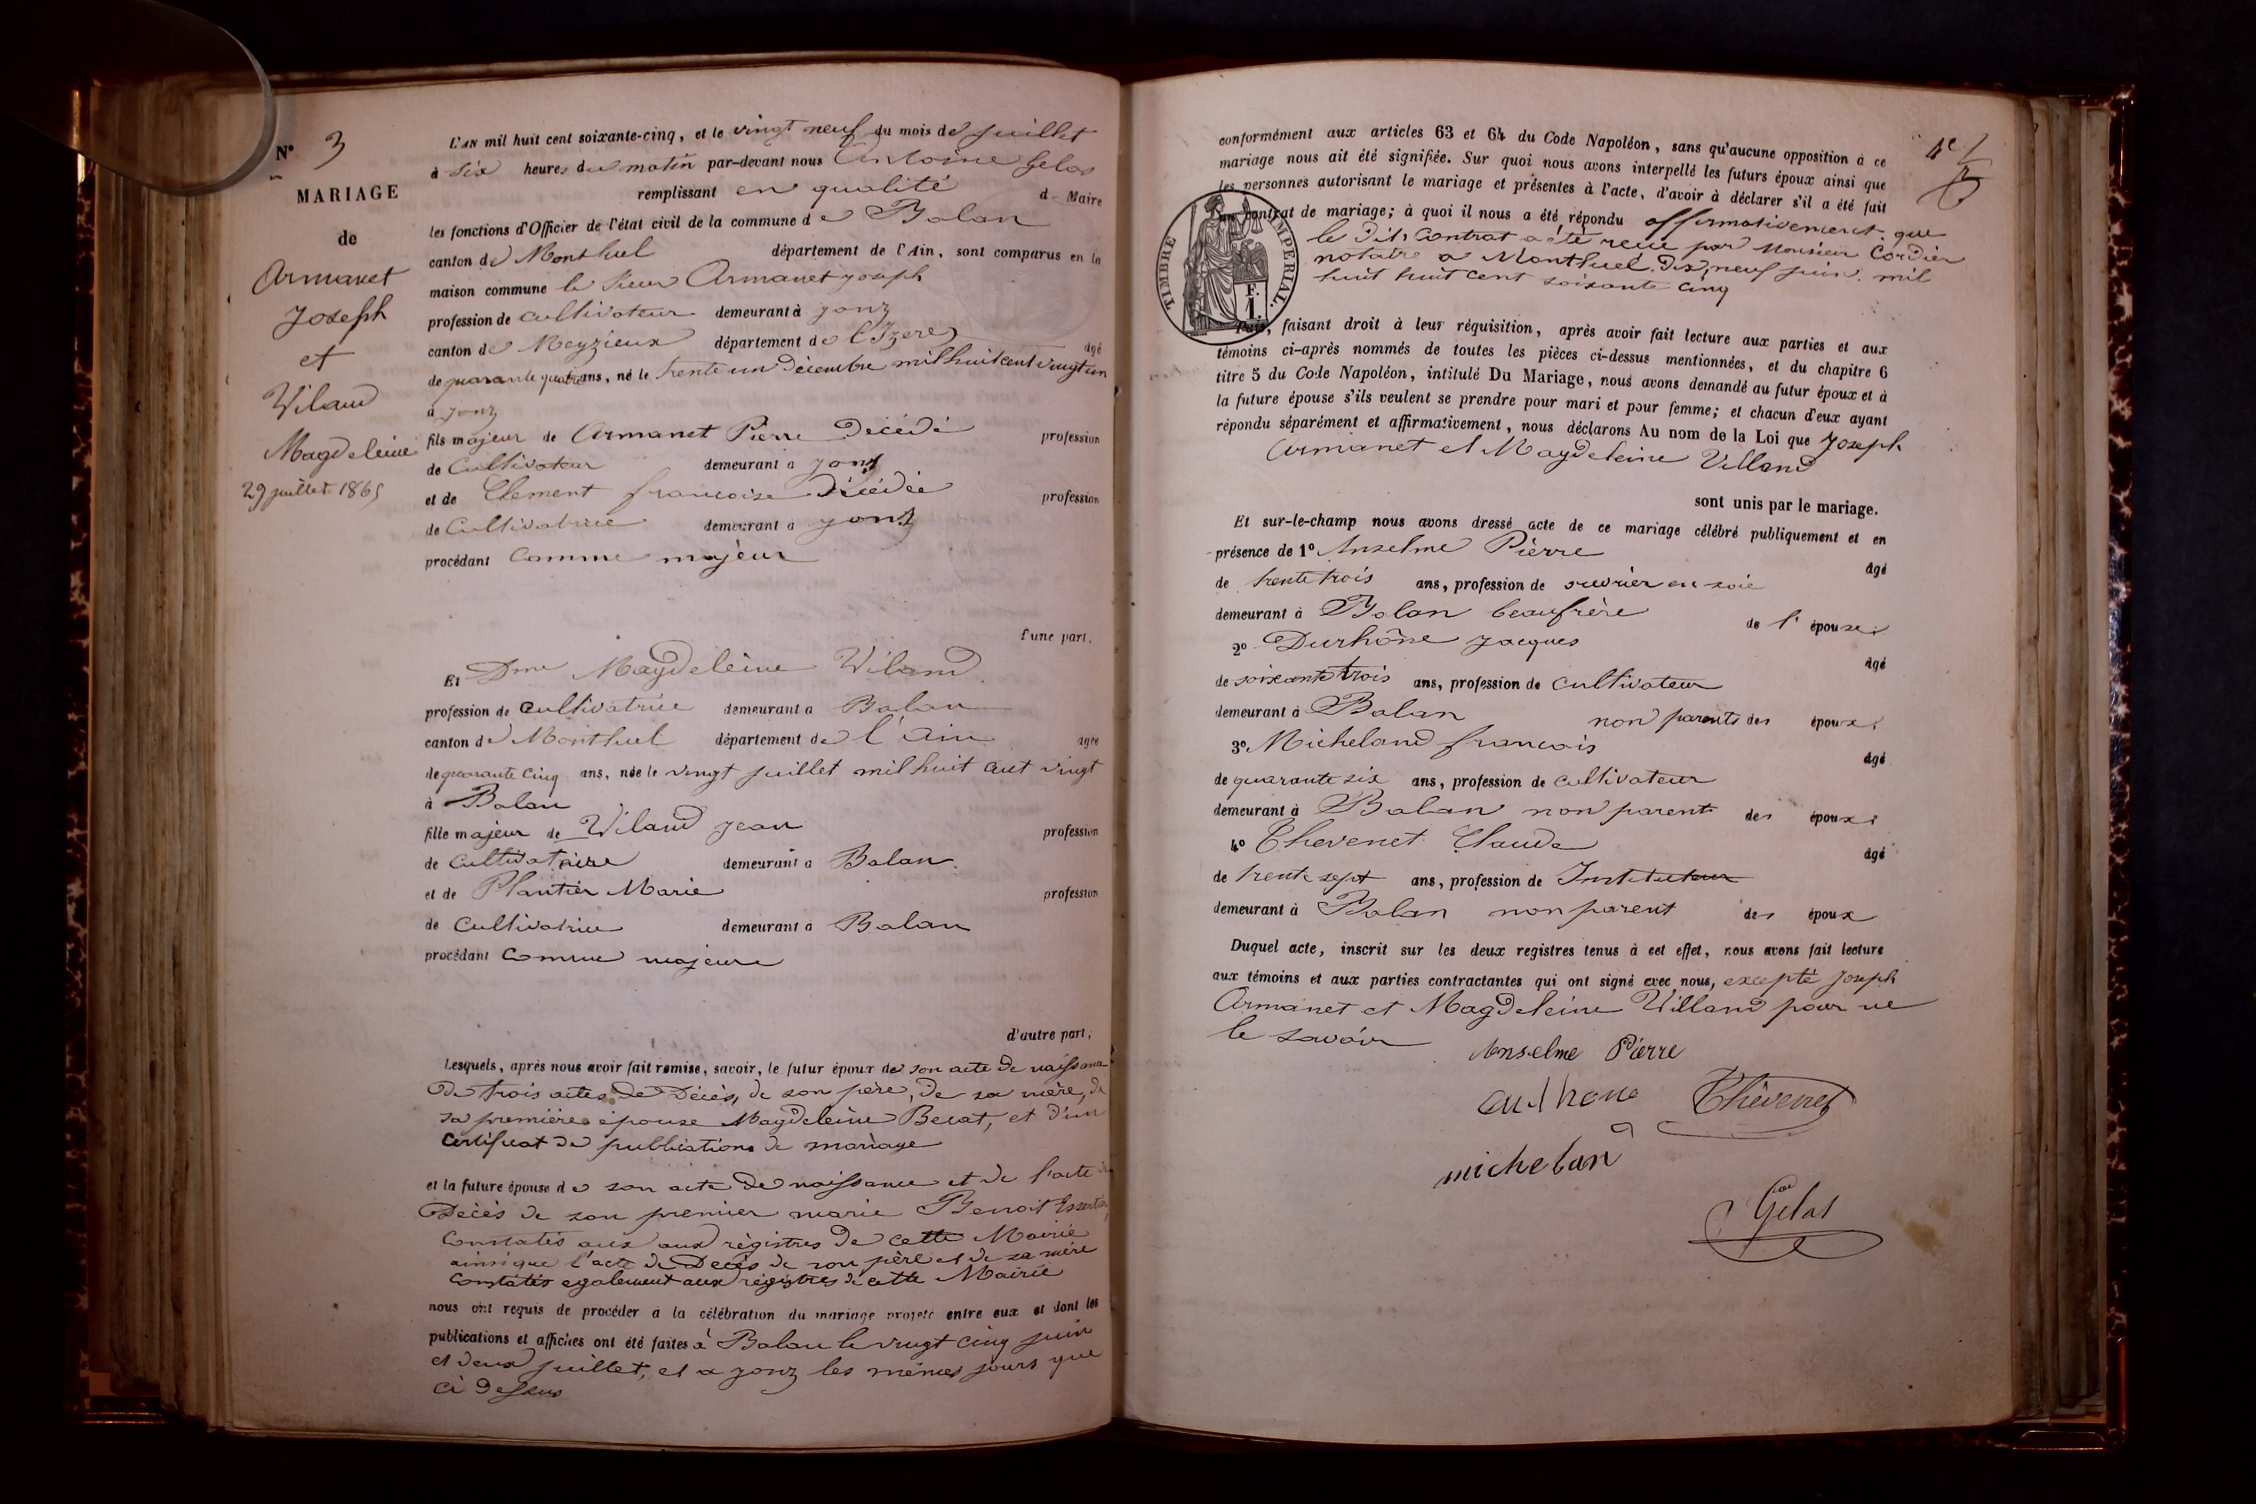 N° 3
MARIAGE
de
Armanet
Joseph
et
Viland
Magdeleine
29 juillet 1865
L'AN mil huit cent soixante-cinq, et le vingt neuf du mois de juillet
à six heures du matin par-devant nous Antoine Gelas
remplissant en qualité de Maire
les fonctions d'Officier de l'état civil de la commune de Balan
canton de Montluel département de l'Ain, sont comparus en la
maison commune le Sieur Armanet joseph
profession de cultivateur demeurant à jonz
canton de Meyzieux département de l'Izere âgé
de quarante quatre ans, né le trente un Décembre mil huit cent vingt un
à jonz
fils majeur de Armanet Pierre Décédé profession
de Cultivateur demeurant à jonz
et de Clement francoise Décédée profession
de Cultivatrice demeurant à jonz
procédant Comme majeur
d'une part,
Et Dme Magdeleine Viland
profession de Cultivatrice demeurant à Balan
canton de Montluel département de l'Ain âgée
de quarante cinq ans, née le vingt juillet mil huit cent vingt
à Balan
fille majeur de Viland jean profession
de Cultivataire demeurant à Balan
et de Plantier Marie profession
de Cultivatrice demeurant à Balan
procédant Comme majeure
d'autre part,
Lesquels, après nous avoir fait remise, savoir, le futur époux de son acte de naissance
De trois actes de Décès, de son père, de sa mère, de
sa première épouse Magdeleine Berat, et d'un
Certificat de publications de mariage
et la future épouse de son acte de naissance et de l'acte de
Décès de son premier marie Benoit
Constatés aux régistres de cette Mairie
ainsi que l'acte de Décès de son père et de sa mère
Constatés egalement aux régistres de cette Mairie
nous ont requis de procéder à la célébration du mariage projeté entre eux et dont les
publications et affiches ont été faites à Balan le vingt cinq juin
et deux juillet, et a jonz les mêmes jours que
ci Dessus
4e
conformément aux articles 63 et 64 du Code Napoléon, sans qu'aucune opposition à ce
mariage nous ait été signifiée. Sur quoi nous avons interpellé les futurs époux ainsi que
les personnes autorisant le mariage et présentes à l'acte, d'avoir à déclarer s'il a été fait
un contrat de mariage; à quoi il nous a été répondu affirmativement que
le Dit Contrat a été recu par Monsieur Cordier
notaire a Montluel Dix neuf juin mil
huit huit cent soixante cinq
TIMBRE IMPERIAL.
1 F.
Puis, faisant droit à leur réquisition, après avoir fait lecture aux parties et aux
témoins ci-après nommés de toutes les pièces ci-dessus mentionnées, et du chapitre 6
titre 5 du Code Napoléon, intitulé Du Mariage, nous avons demandé au futur époux et à
la future épouse s'ils veulent se prendre pour mari et pour femme; et chacun d'eux ayant
répondu séparément et affirmativement, nous déclarons Au nom de la Loi que Joseph
Armanet et Magdeleine Villand
sont unis par le mariage.
Et sur-le-champ nous avons dressé acte de ce mariage célébré publiquement et en
présence de 1° Anselme Pierre âgé
de trente trois ans, profession de ouvrier en soie
demeurant à Balan beaufrère de l' épouse
2° Durhône jacques âgé
de soixante trois ans, profession de Cultivateur
demeurant à Balan non parents des époux
3° Micheland francois âgé
de quarante six ans, profession de cultivateur
demeurant à Balan non parent des époux
4° Thevenet Claude âgé
de trente sept ans, profession de Instituteur
demeurant à Balan non parent des époux
Duquel acte, inscrit sur les deux registres tenus à cet effet, nous avons fait lecture
aux témoins et aux parties contractantes qui ont signé avec nous, excepté Joseph
Armanet et Magdeleine Villand pour ne
le savoir
Anselme Pierre
Thèvenet
michelan
Gelas